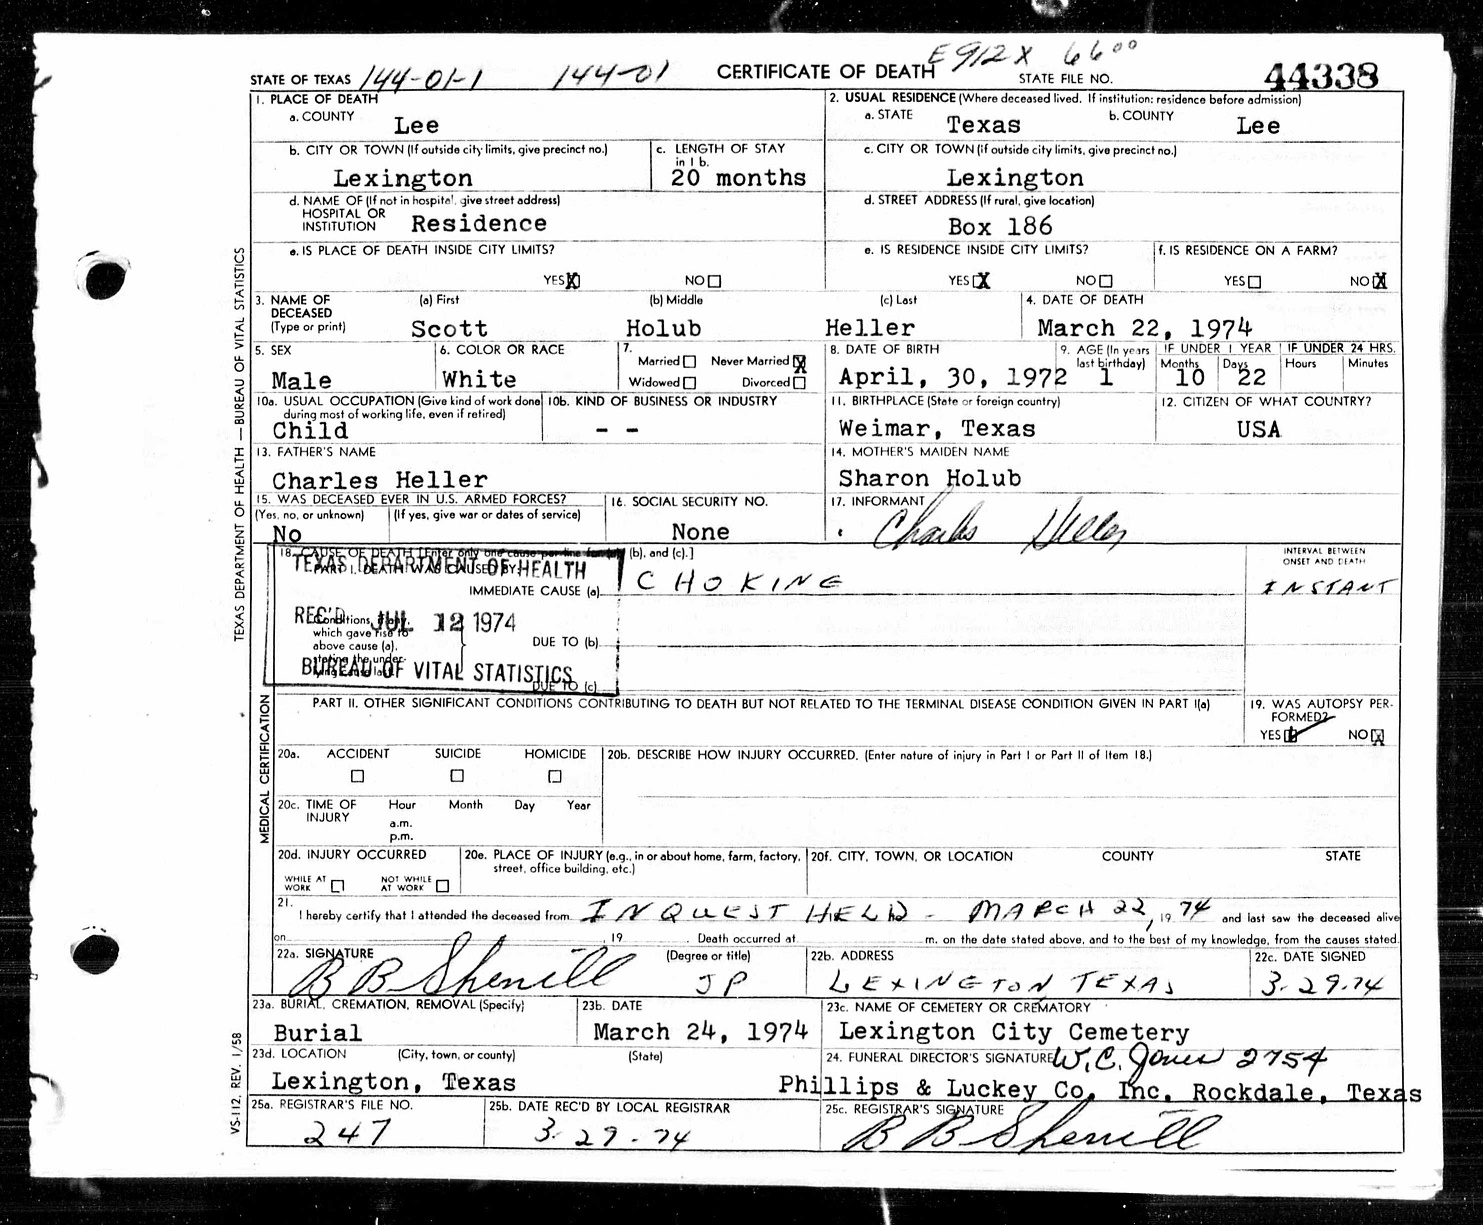 E912X 6600
STATE OF TEXAS 144-01-1 144-01 CERTIFICATE OF DEATH STATE FILE NO. 44338
1. PLACE OF DEATH
a. COUNTY Lee
2. USUAL RESIDENCE (Where deceased lived. If institution: residence before admission)
a. STATE Texas b. COUNTY Lee
b. CITY OR TOWN (If outside city limits, give precinct no.) Lexington
c. LENGTH OF STAY in 1 b. 20 months
c. CITY OR TOWN (if outside city limits, give precinct no.) Lexington
d. NAME OF (If not in hospital, give street address) HOSPITAL OR INSTITUTION Residence
d. STREET ADDRESS (If rural, give location) Box 186
e. IS PLACE OF DEATH INSIDE CITY LIMITS? YES X NO
e. IS RESIDENCE INSIDE CITY LIMITS? YES X NO
f. IS RESIDENCE ON A FARM? YES NO X
3. NAME OF DECEASED (Type or print)
(a) First Scott
(b) Middle Holub
(c) Last Heller
4. DATE OF DEATH March 22, 1974
5. SEX Male
6. COLOR OR RACE White
7. Married Never Married X Widowed Divorced
8. DATE OF BIRTH April, 30, 1972
9. AGE (In years last birthday) 1
IF UNDER 1 YEAR Months 10 Days 22
IF UNDER 24 HRS. Hours Minutes
10a. USUAL OCCUPATION (Give kind of work done during most of working life, even if retired) Child
10b. KIND OF BUSINESS OR INDUSTRY - -
11. BIRTHPLACE (State or foreign country) Weimar, Texas
12. CITIZEN OF WHAT COUNTRY? USA
13. FATHER'S NAME Charles Heller
14. MOTHER'S MAIDEN NAME Sharon Holub
15. WAS DECEASED EVER IN U.S. ARMED FORCES?
(Yes, no, or unknown) No (If yes, give war or dates of service)
16. SOCIAL SECURITY NO. None
17. INFORMANT Charles Heller
18. CAUSE OF DEATH [Enter only one cause per line for (a), (b), and (c).]
PART I. DEATH WAS CAUSED BY:
IMMEDIATE CAUSE (a) CHOKING
INTERVAL BETWEEN ONSET AND DEATH INSTANT
Conditions, if any, which gave rise to above cause (a), stating the underlying cause last.
DUE TO (b)
DUE TO (c)
TEXAS DEPARTMENT OF HEALTH
REC'D JUL 12 1974
BUREAU OF VITAL STATISTICS
PART II. OTHER SIGNIFICANT CONDITIONS CONTRIBUTING TO DEATH BUT NOT RELATED TO THE TERMINAL DISEASE CONDITION GIVEN IN PART I(a)
19. WAS AUTOPSY PERFORMED? YES NO X
20a. ACCIDENT SUICIDE HOMICIDE
20b. DESCRIBE HOW INJURY OCCURRED. (Enter nature of injury in Part I or Part II of Item 18.)
20c. TIME OF INJURY Hour Month Day Year
a.m.
p.m.
20d. INJURY OCCURRED
WHILE AT WORK NOT WHILE AT WORK
20e. PLACE OF INJURY (e.g., in or about home, farm, factory, street, office building, etc.)
20f. CITY, TOWN, OR LOCATION COUNTY STATE
21. I hereby certify that I attended the deceased from INQUEST HELD - MARCH 22, 19 74 and last saw the deceased alive
on 19 Death occurred at m. on the date stated above, and to the best of my knowledge, from the causes stated.
22a. SIGNATURE B B Sherrill (Degree or title) JP
22b. ADDRESS LEXINGTON TEXAS
22c. DATE SIGNED 3-29-74
23a. BURIAL, CREMATION, REMOVAL (Specify) Burial
23b. DATE March 24, 1974
23c. NAME OF CEMETERY OR CREMATORY Lexington City Cemetery
23d. LOCATION (City, town, or county) (State) Lexington, Texas
24. FUNERAL DIRECTOR'S SIGNATURE W.C. Jones 2754
Phillips & Luckey Co. Inc. Rockdale, Texas
25a. REGISTRAR'S FILE NO. 247
25b. DATE REC'D BY LOCAL REGISTRAR 3-29-74
25c. REGISTRAR'S SIGNATURE B B Sherrill
TEXAS DEPARTMENT OF HEALTH — BUREAU OF VITAL STATISTICS
MEDICAL CERTIFICATION
VS-112, REV. 1/58